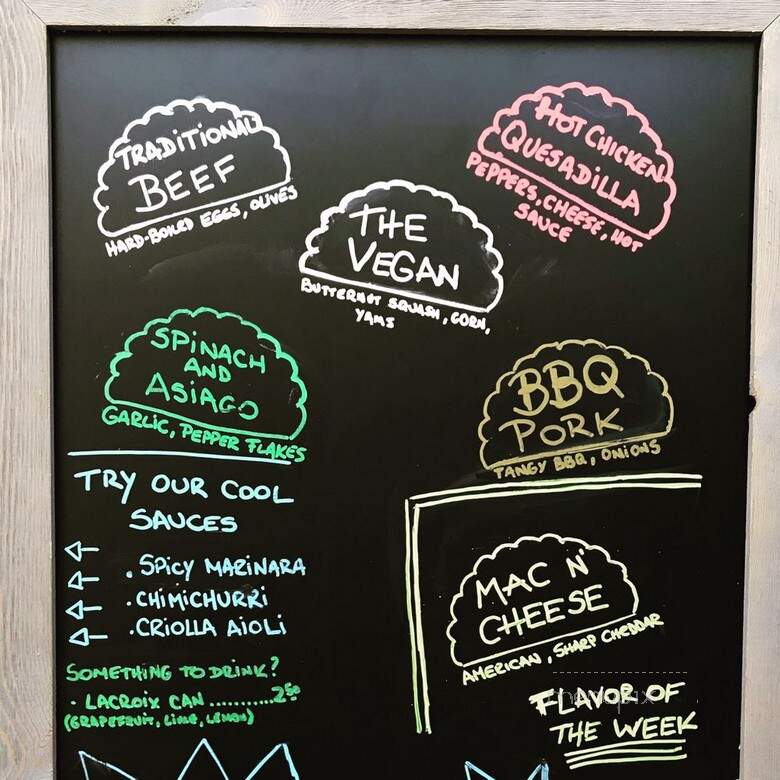 TRADITIONAL
BEEF
HARD-BOILED EGGS, OLIVES
HOT CHICKEN
QUESADILLA
PEPPERS, CHEESE, HOT
SAUCE
THE
VEGAN
BUTTERNUT SQUASH, CORN,
YAMS
SPINACH
AND
ASIAGO
GARLIC, PEPPER FLAKES
BBQ
PORK
TANGY BBQ, ONIONS
TRY OUR COOL
SAUCES
. SPICY MARINARA
. CHIMICHURRI
. CRIOLLA AIOLI
SOMETHING TO DRINK?
· LACROIX CAN ...........2.50
(GRAPEFRUIT, LIME, LEMON)
MAC N'
CHEESE
AMERICAN, SHARP CHEDDAR
FLAVOR OF
THE WEEK